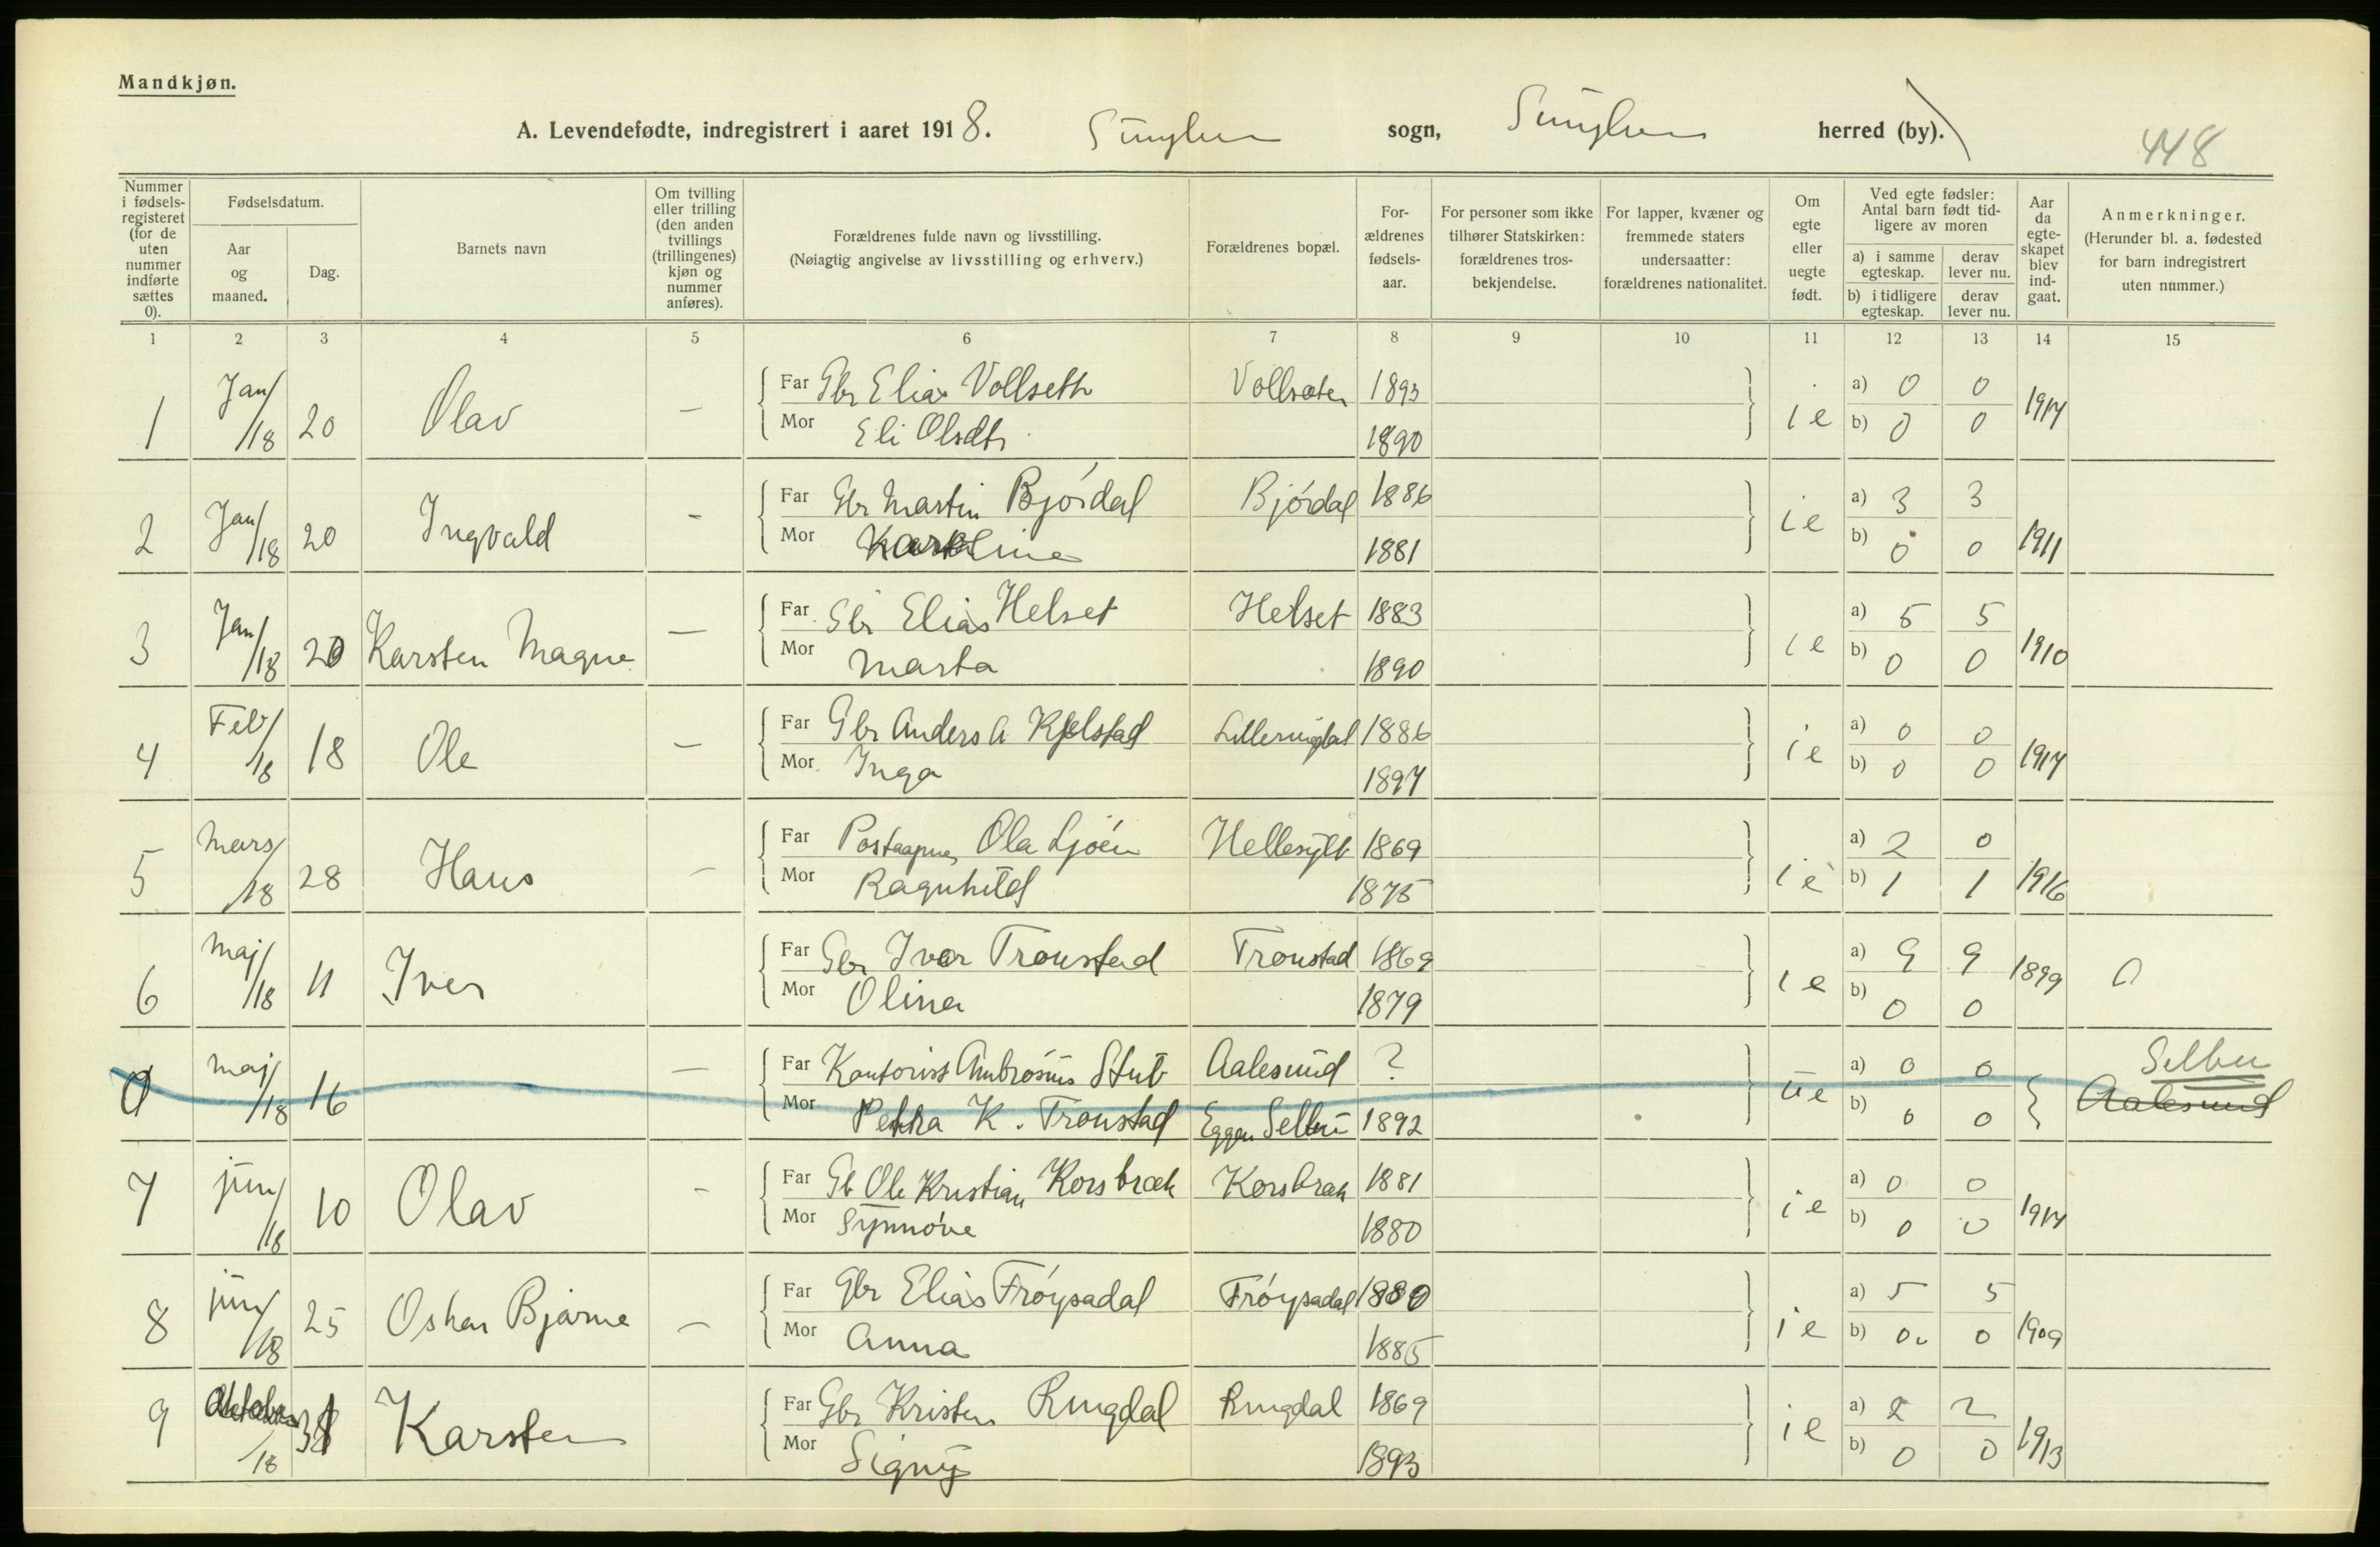 Mandkjøn.
A. Levendefødte, indregistrert i aaret 1918. Sunylven sogn, Sunylven herred (by).
448
Nummer i fødselsregisteret (for de uten nummer indførte sættes 0).
Fødselsdatum.
Aar og maaned.
Dag.
Barnets navn
Om tvilling eller trilling (den anden tvillings (trillingenes) kjøn og nummer anføres).
Forældrenes fulde navn og livsstilling.
(Nøiagtig angivelse av livsstilling og erhverv.)
Forældrenes bopæl.
Forældrenes fødselsaar.
For personer som ikke tilhører Statskirken: forældrenes trosbekjendelse.
For lapper, kvæner og fremmede staters undersaatter: forældrenes nationalitet.
Om egte eller uegte født.
Ved egte fødsler: Antal barn født tidligere av moren
a) i samme egteskap. derav lever nu.
b) i tidligere egteskap. derav lever nu.
Aar da egteskapet blev indgaat.
Anmerkninger.
(Herunder bl. a. fødested for barn indregistrert uten nummer.)
1 2 3 4 5 6 7 8 9 10 11 12 13 14 15
1 Jan/18 20 Olav — Far Gbr Elias Vollseth Vollsæter 1893 ie a) 0 0 1917
Mor Eli Olsdtr 1890 b) 0 0
2 Jan/18 20 Ingvald - Far Gbr Martin Bjórdal Bjórdal 1886 ie a) 3 3 1911
Mor 1881 b) 0 0
3 Jan/18 20 Karsten Magne — Far Gbr Elias Helset Helset 1883 ie a) 5 5 1910
Mor Marta 1890 b) 0 0
4 Feb/18 18 Ole — Far Gbr Anders A Kjelstad 1886 ie a) 0 0 1917
Mor Inga 1897 b) 0 0
5 Mars/18 28 Hans - Far Ola Ljóen Hellesylt 1869 ie a) 2 0 1916
Mor Ragnhild 1875 b) 1 1
6 Maj/18 11 Iver Far Gbr Iver Tronstad Tronstad 1869 ie a) 9 9 1899
Mor Olina 1879 b) 0 0
0 Maj/18 16 — Far Kontorist Ambrosius Stub Aalesund ? ue a) 0 0 Selbu
Mor Petra K. Tronstad Eggen Selbu 1892 b) 0 0 Aalesund
7 jun/18 10 Olav - Far Gb Ole Kristian Korsbræk Korsbræk 1881 ie a) 0 0 1917
Mor Synnóve 1880 b) 0 0
8 jun/18 25 Oskar Bjarne — Far Gbr Elias Fróysadal Fróysadal 1880 ie a) 5 5 1909
Mor Anna 1885 b) 0 0
9 Oktober/18 Karsten Far Gbr Kristen Ringdal Ringdal 1869 ie a) 2 2 1913
Mor Signy 1893 b) 0 0